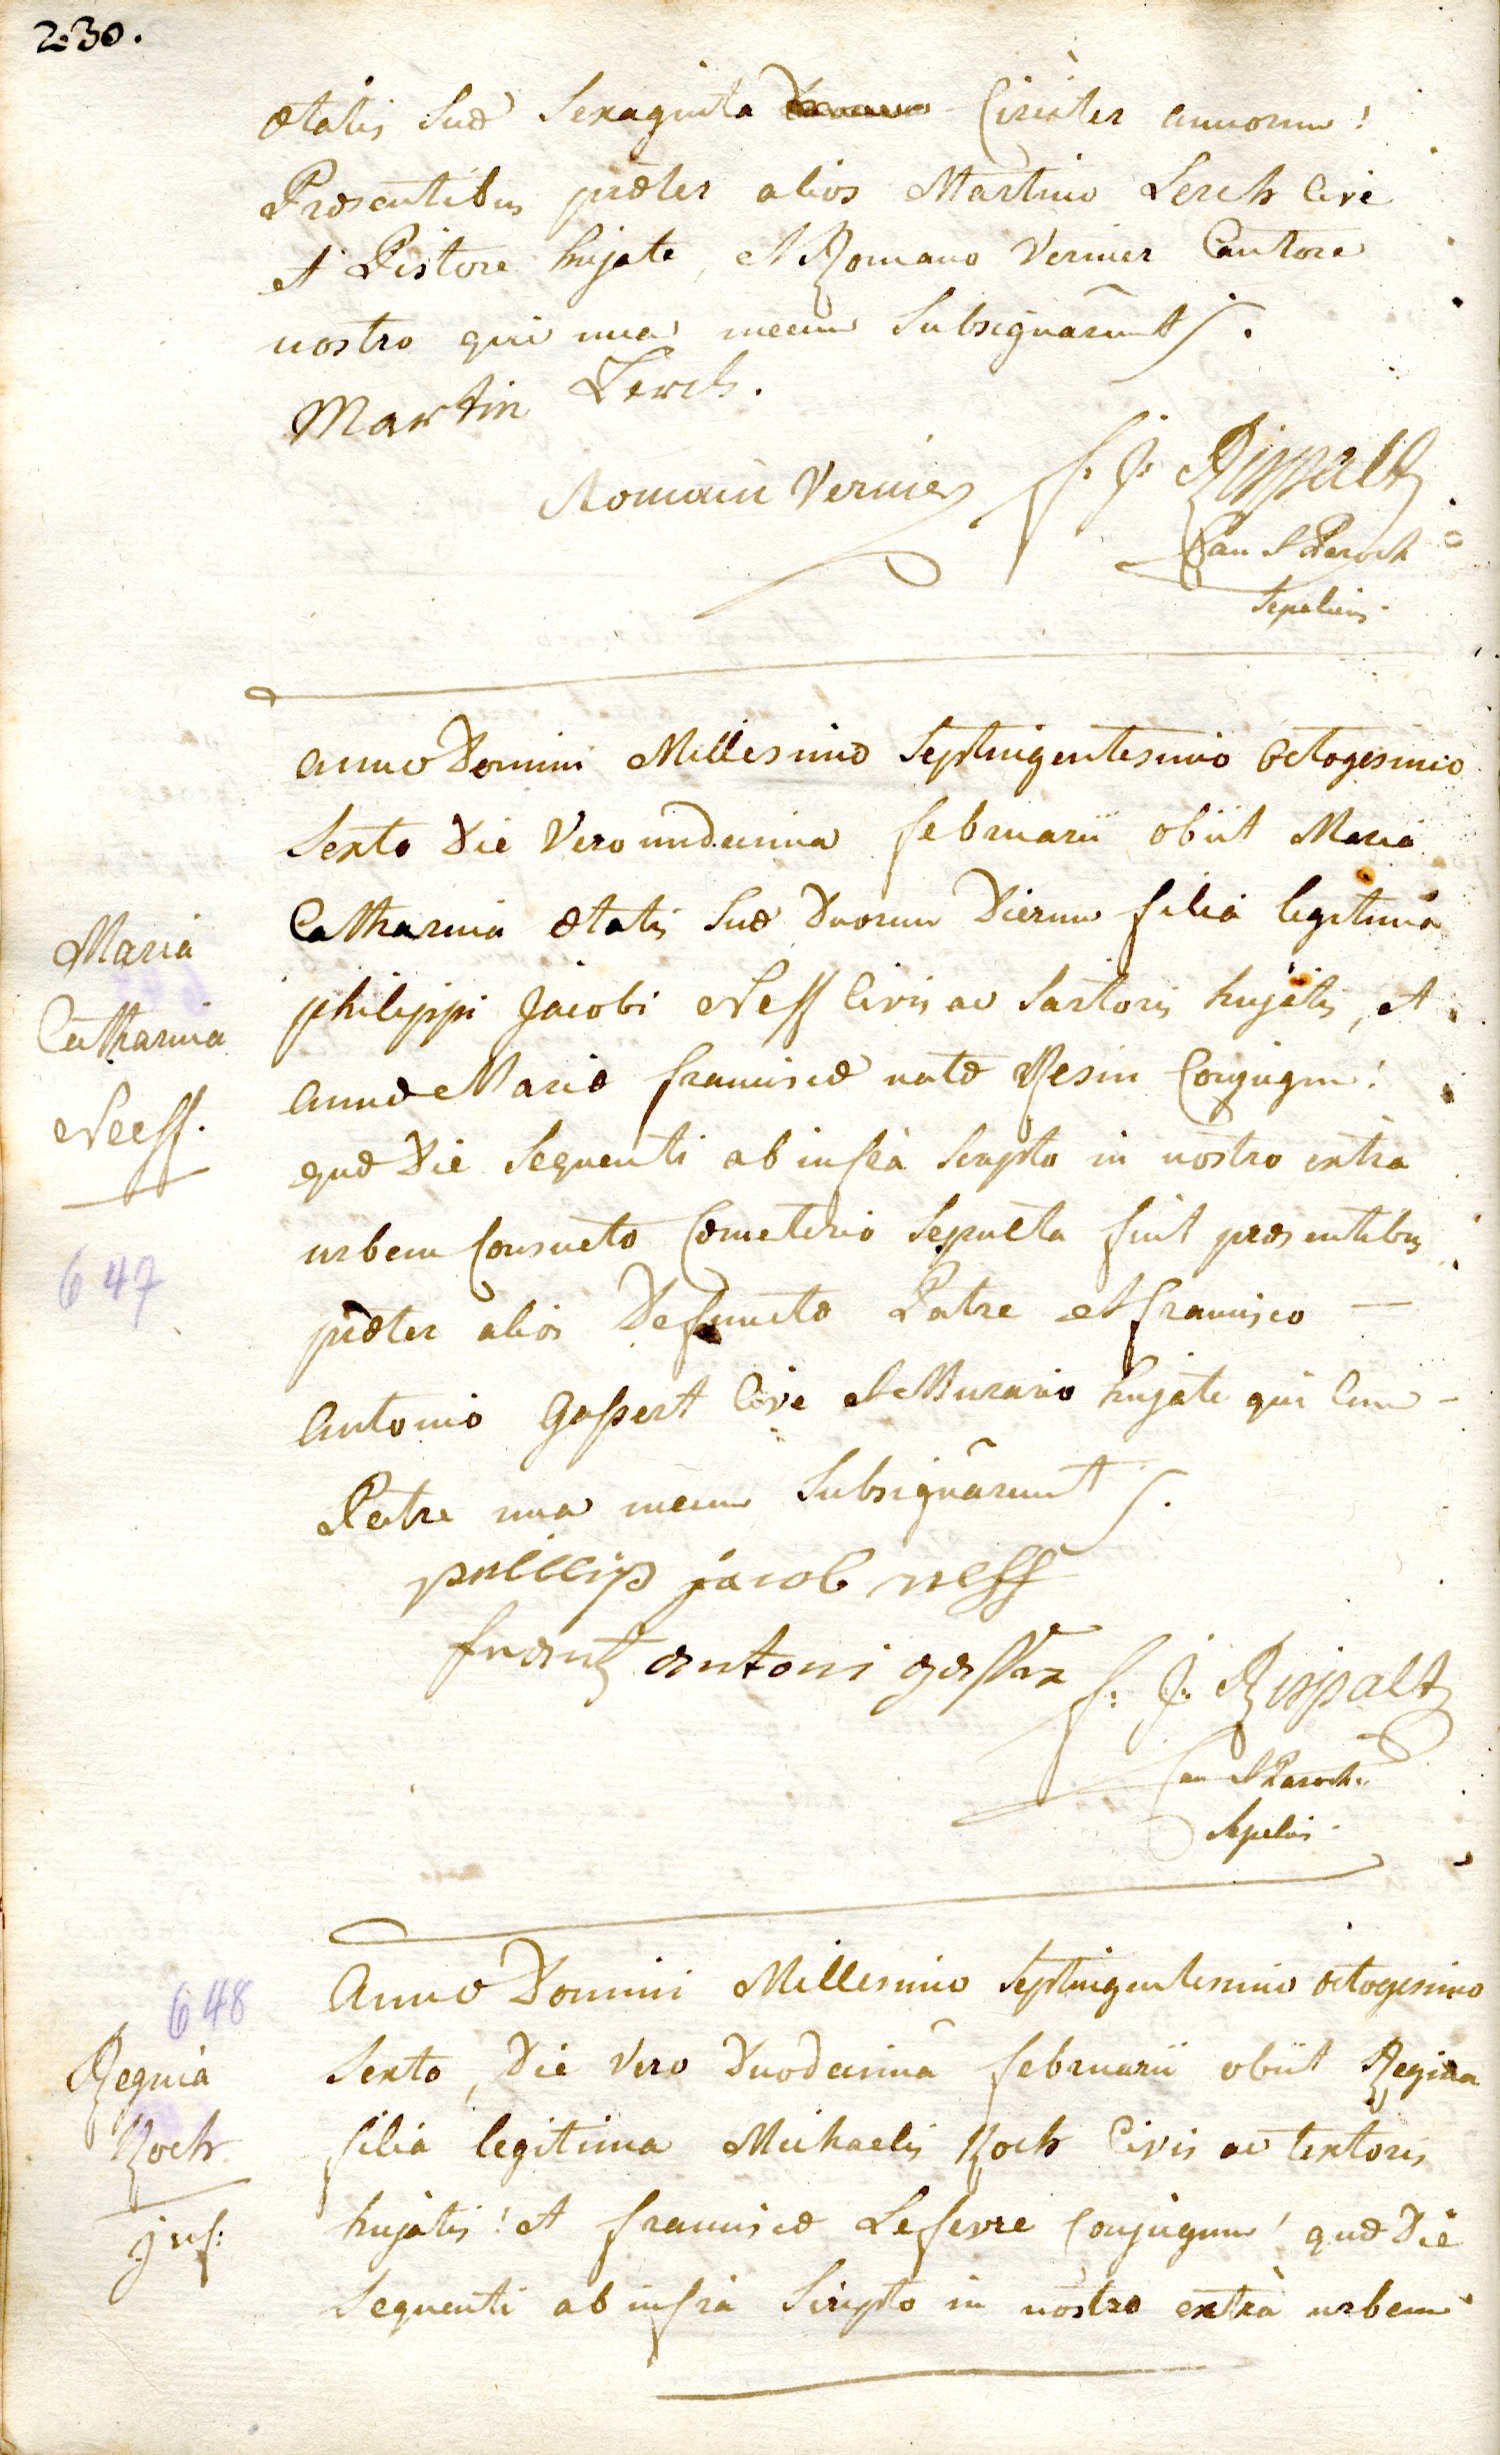 230.
ætatis Suæ Sexaginta Circiter annorum!
Præsentibus præter alios Martino Lerch Cive
et Pistore hujate, et Romano Vernier Cantore
nostro qui una mecum Subsignârunt
Martin Lerch.
Romain Vernier F: J: Rippaltz
Can et Paroch
Sepeliens
Anno Domini Millesimo Septingentesimo Octogesimo
Sexto Die Vero undecima februarii obiit Maria
Catharina ætatis Suæ Duorum Dierum filia legitima
philippi Jacobi Neff Civis ac Sartoris hujatis, et
Annæ Mariæ franciscæ natæ Resin Conjugum!
quæ Die Sequenti ab infrà Scripto in nostro extra
urbem Consueto Cœmeterio Sepulta fuit præsentibus
præter alios Defunctæ Patre et francisco —
Antonio Gassert Cive et Murario hujate qui Cum -
Patre una mecum Subsignârunt
Maria
Catharina
Neeff.
647
phillip jacob neff
frantz antoni
F: J: Rippaltz
Can et Paroch.
Sepeliens
Anno Domini Millesimo Septingentesimo octogesimo
Sexto, Die Vero Duodecimâ februarii obiit Regina
filia legitima Michaelis Koch Civis ac textoris
hujatis! et franciscæ Lefevre Conjugum! quæ Die
Sequenti ab infrà Scripto in nostro extrà urbem
648
Regina
Koch
inf: